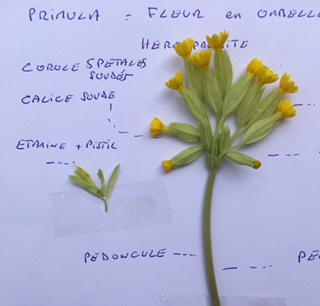 PRIMULA = FLEUR en OMBELLE
HERMAPHRODITE
COROLE 5 PETALES
SOUDÉS
CALICE SOUDÉ
ETAMINE + PISTIL
PEDONCULE
PE